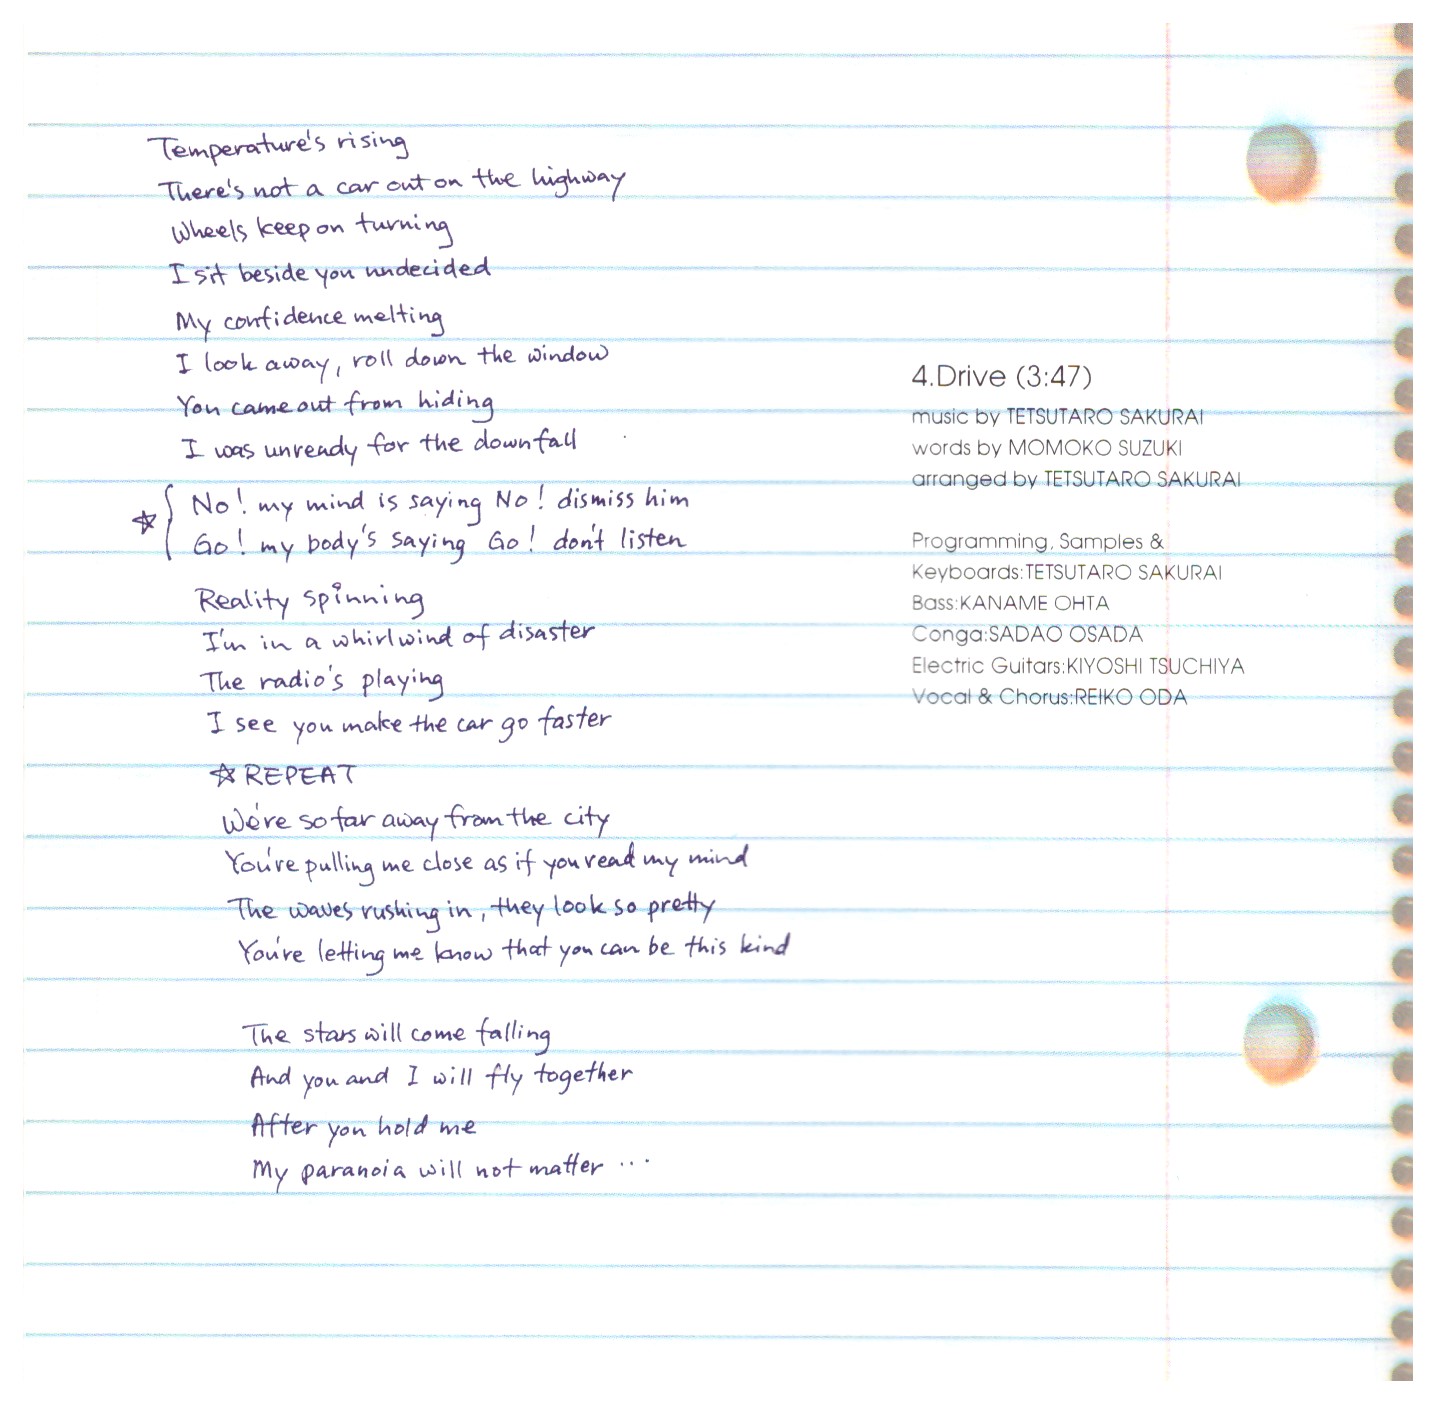 Temperature's rising
There's not a car out on the highway
Wheels keep on turning
I sit beside you undecided
My confidence melting
I look away, roll down the window
You came out from hiding
I was unready for the downfall
☆ { No! my mind is saying No! dismiss him
Go! my body's saying Go! don't listen
Reality spinning
I'm in a whirlwind of disaster
The radio's playing
I see you make the car go faster
☆ REPEAT
We're so far away from the city
You're pulling me close as if you read my mind
The waves rushing in, they look so pretty
You're letting me know that you can be this kind
The stars will come falling
And you and I will fly together
After you hold me
My paranoia will not matter ...
4.Drive (3:47)
music by TETSUTARO SAKURAI
words by MOMOKO SUZUKI
arranged by TETSUTARO SAKURAI
Programming, Samples &
Keyboards:TETSUTARO SAKURAI
Bass:KANAME OHTA
Conga:SADAO OSADA
Electric Guitars:KIYOSHI TSUCHIYA
Vocal & Chorus:REIKO ODA